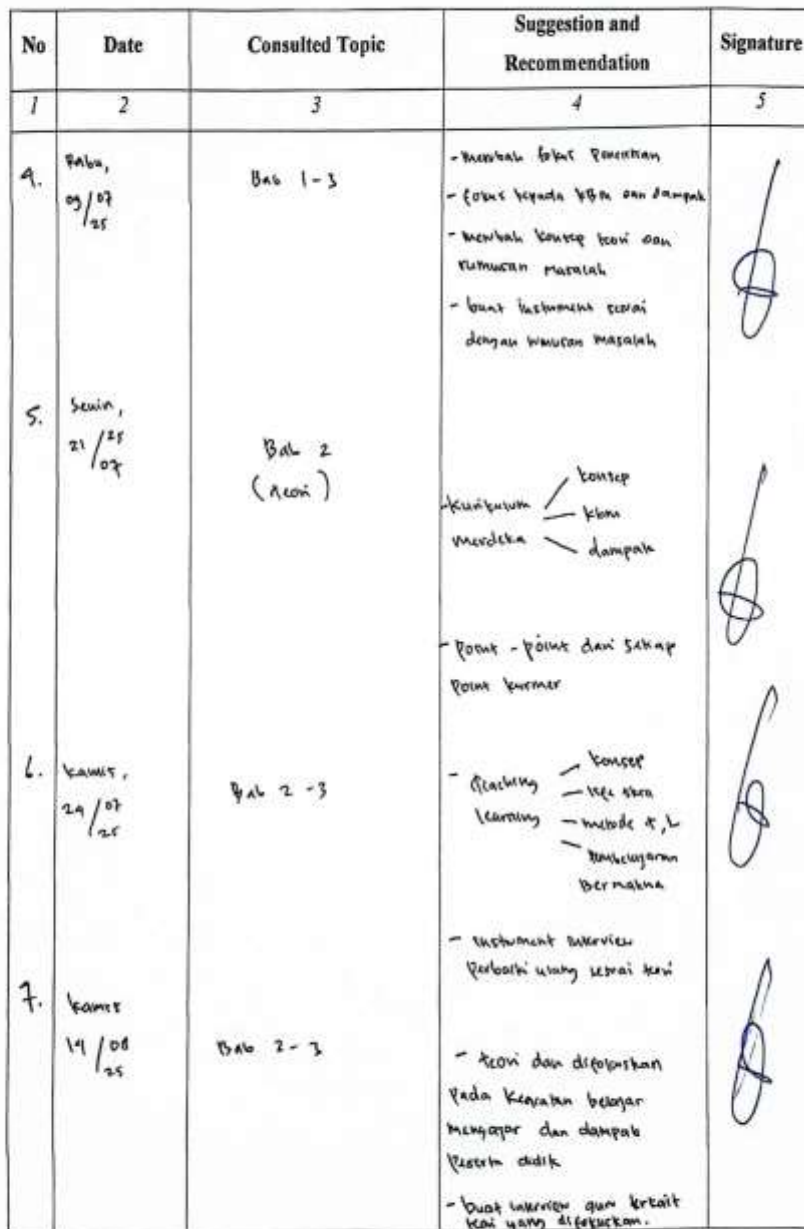 No Date Consulted Topic Suggestion and Recommendation Signature
1 2 3 4 5
4. Rabu, 09/07/25
Bab 1-3
- merubah fokus penelitian
- fokus kepada kbm dan dampak
- merubah konsep teori dan
rumusan masalah
- buat instrument sesuai
dengan rumusan masalah
5. Senin,
21/25/07
Bab 2
(teori)
- kurikulum
merdeka
konsep
kbm
dampak
- point - point dari setiap
point kurmer
6. kamis,
24/07/25
Bab 2-3
- teaching
learning
konsep
metode t, L
pembelajaran
Bermakna
- instrument interview
perbaiki ulang sesuai teori
7. kamis
14/08/25
Bab 2-3
- teori dan difokuskan
pada kegiatan belajar
mengajar dan dampak
peserta didik
- buat interview guru terkait
teori yang difokuskan.